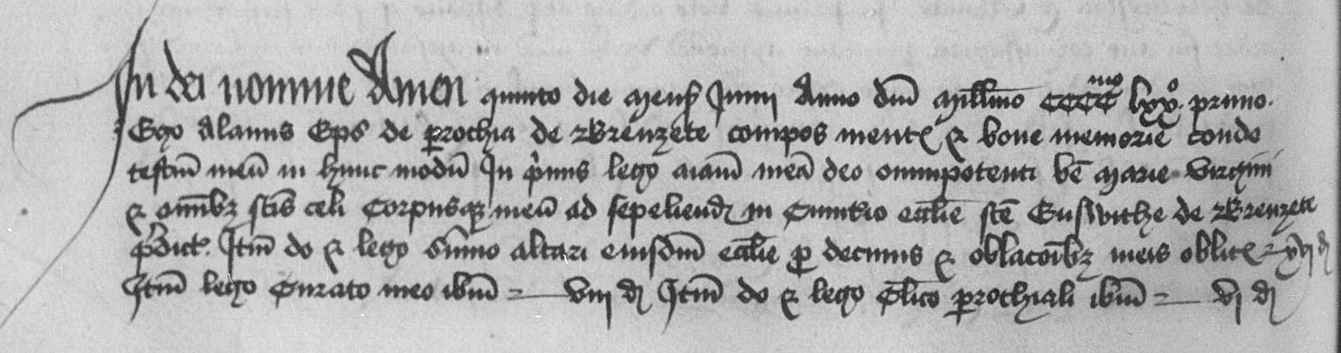 In dei nomine Amen quinto die mens Junij Anno dni Millmo cccc mo lxxo primo.
Ego Alanus Eps de prochia de Brenzete compos ment & bone memorie condo
testm meu in hunc modu In primis lego aiam mea deo omnipotenti be Marie virgini
& omibz scis celi Corpusqz meu ad sepeliend in Cimitio ecclie ste Euswithe de Brenzete
pdict. Itm do & lego sumo altari eiusdm ecclie p decimis & oblacoibz meis oblit xij d
Itm lego Curato meo ibm viij d Itm do & lego Clico prochiali ibm vj d